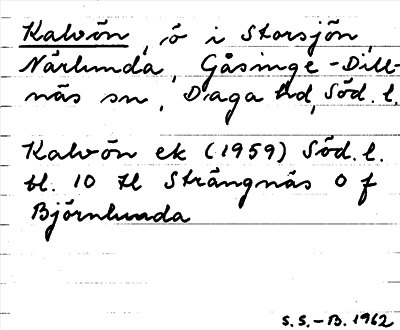 Kalvön, ö i Storsjön,
Närlunda, Gåsinge-Dill-
näs sn, Daga hd, Söd. l.
Kalvön ek (1959) Söd. l.
bl. 10 Hl Strängnäs O f
Björnlunda
S.S.-B. 1962